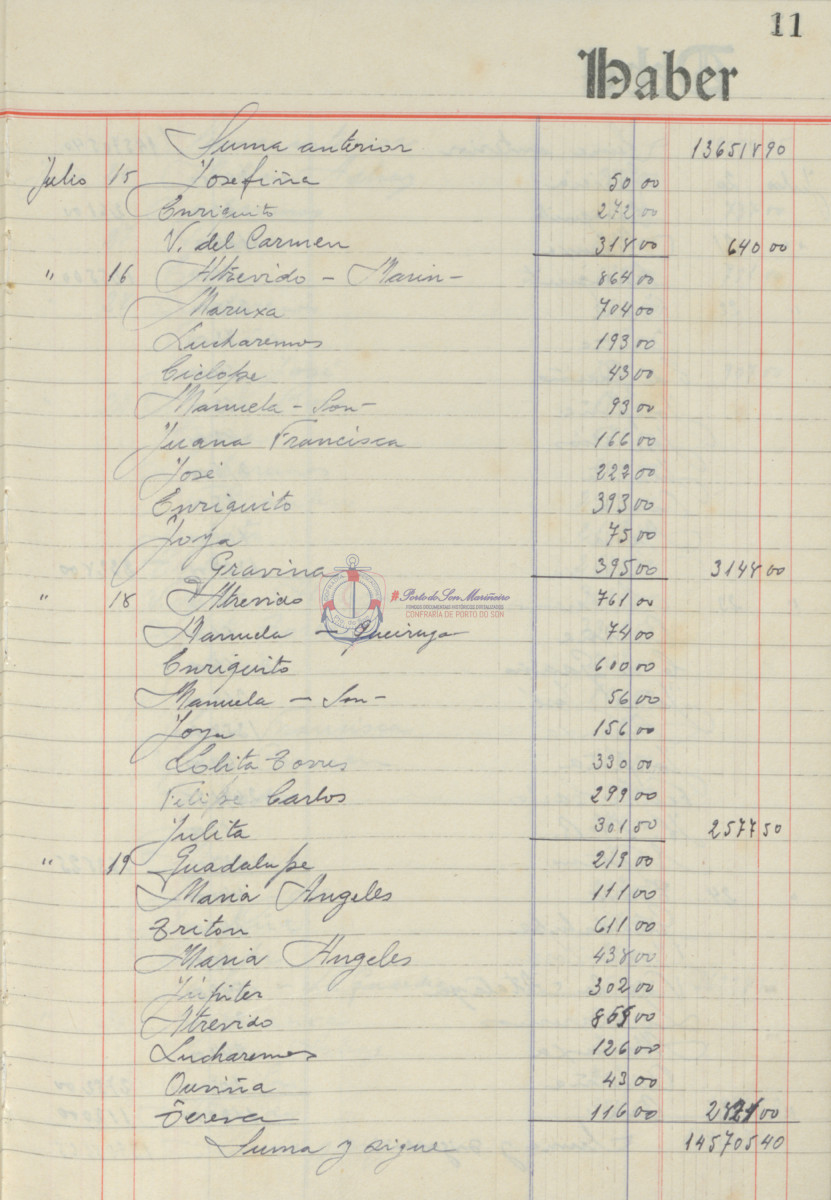 11
Haber
Suma anterior 136518 90
Julio 15 Josefiña 50 00
Enriquito 272 00
V. del Carmen 318 00 640 00
" 16 Atrevido - Marin - 864 00
Maruxa 704 00
Lucharemos 193 00
Ciclope 43 00
Manuela - Son - 93 00
Juana Francisca 166 00
José 222 00
Enriquito 393 00
Joya 75 00
Gravina 395 00 3148 00
" 18 Atrevido 761 00
Manuela - Queiruga 74 00
Enriquito 600 00
Manuela - Son - 56 00
Joya 156 00
Lolita Torres 330 00
Felipe Carlos 299 00
Julita 301 50 2577 50
" 19 Guadalupe 219 00
Maria Angeles 111 00
Triton 611 00
Maria Angeles 438 00
Júpiter 302 00
Atrevido 855 00
Lucharemos 126 00
Ouviña 43 00
Tereva 116 00 2821 00
Suma y sigue 145705 40
#Porto do Son Mariñeiro
FONDOS DOCUMENTAIS HISTÓRICOS DIXITALIZADOS
CONFRARÍA DE PORTO DO SON